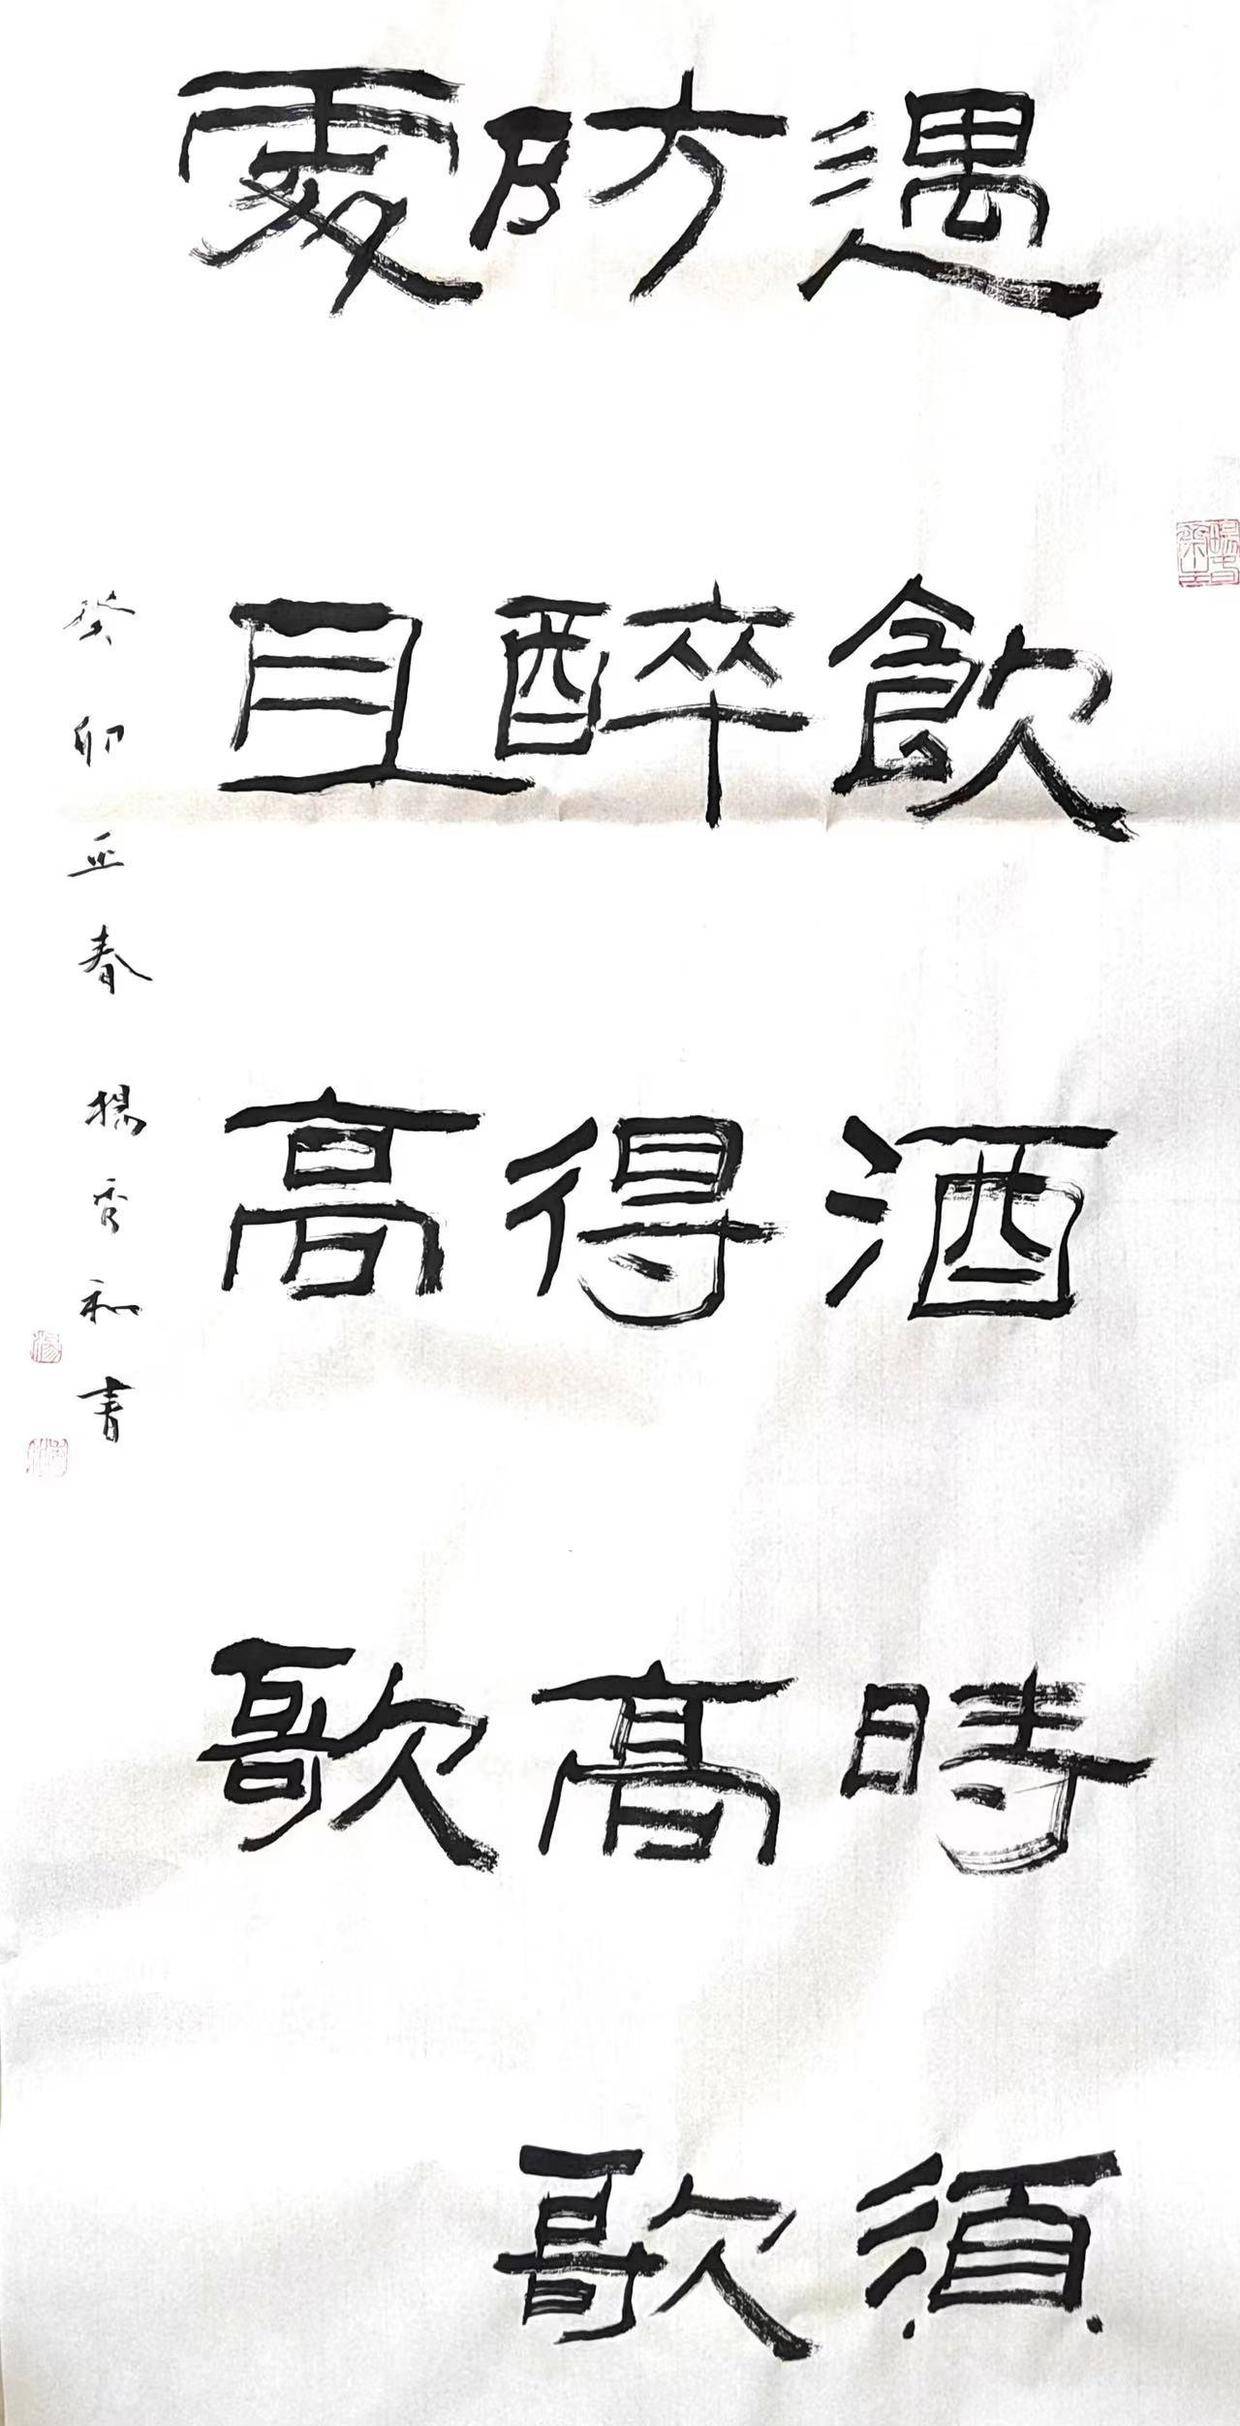 遇飲酒時須
防醉得高歌
處且高歌
癸卯立春 楊秀和書